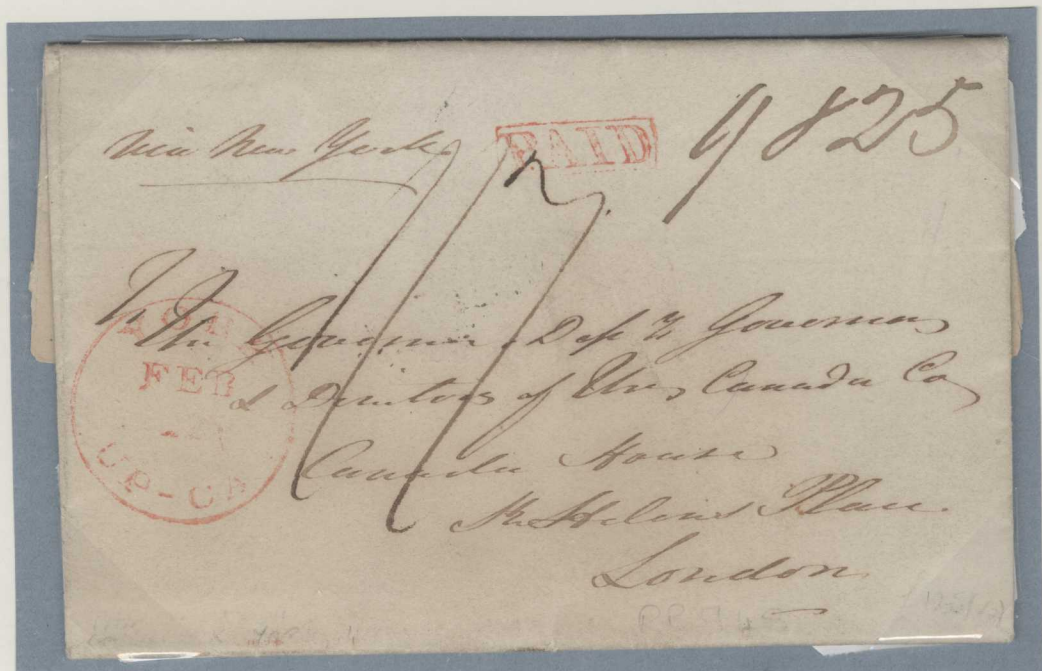 via New York
PAID
9 825
To
The Governor Dep ty Governor
& Directors of the Canada Co
Canada House
St Helens Place
London
YORK
FEB
UP-CA